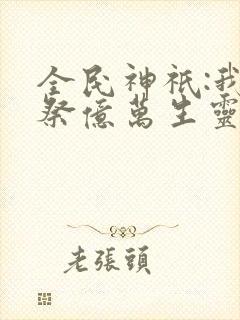 全民神祇:我
祭億萬生靈
老張頭